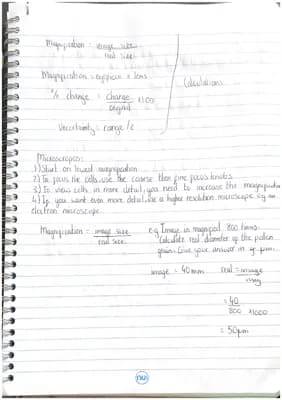 Magnification = image size
real size
Magnification = eyepiece × lens
Calculations
% change = change ×100
original
Uncertainty = range/2
Microscopes:
1) Start on lowest magnification
2) To focus the cells, use the coarse then fine focus knobs
3) To view cells in more detail, you need to increase the magnification
4) If you want even more detail, use a higher resolution microscope eg an
electron microscope
Magnification = image size
real size
e.g Image is magnified 800 times.
Calculate real diameter of the pollen
grain. Give your answer in μm.
image = 40mm real = image
mag
= 40
800 ×1000
= 50μm
nu